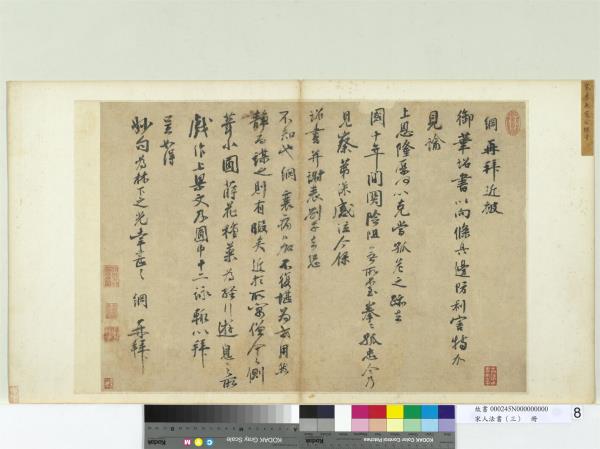 綱再拜近被
御筆詔書以向條具邊防利害特加
見諭
上恩隆厚何以克當孤危之踪在
國十年間關險阻無所不至拳拳孤忠今乃
見察第深感泣今保
詔書并謝表劄子去恐
不知也綱衰病如不復堪為世用若
靜而謀之則有暇矣近於所寓僧舍之側
葺小圃蒔花種菜為經行遊息之所
戲作上梁文及圃中十二詠輒以拜
呈
妙句為林下之光幸甚幸甚綱再拜
故書 000245N000000000
宋人法書(三) 冊
8
KODAK Gray Scale
KODAK Color Control Patches